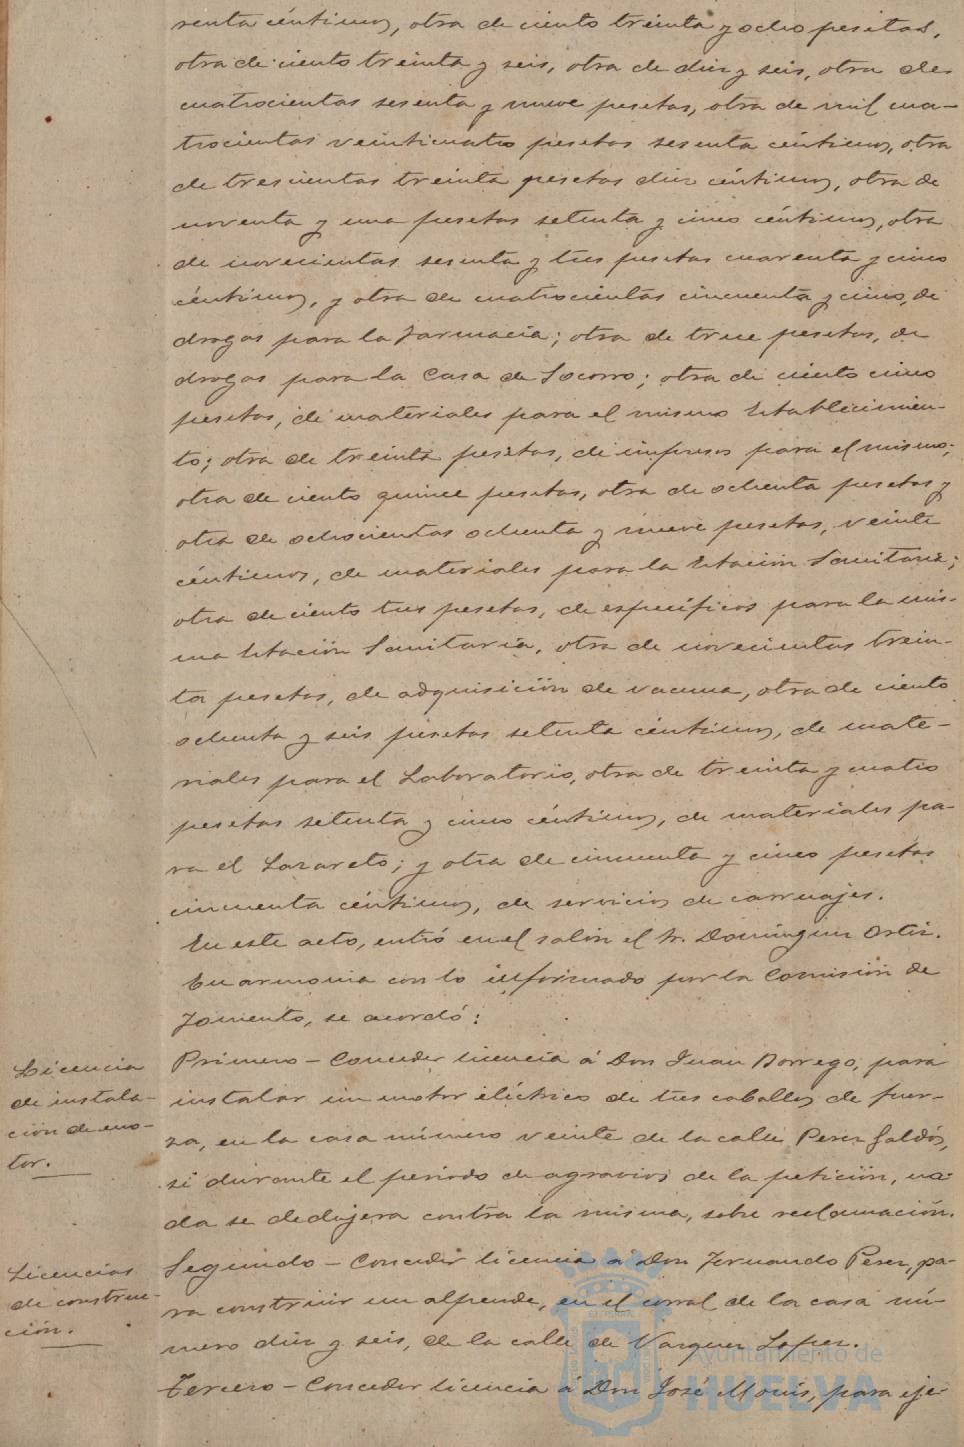 renta céntimos, otra de ciento treinta y ocho pesetas,
otra de ciento treinta y seis, otra de diez y seis, otra de
cuatrocientas sesenta y nueve pesetas, otra de mil cua-
trocientas veinticuatro pesetas sesenta céntimos, otra
de trescientas treinta pesetas diez céntimos, otra de
noventa y una pesetas setenta y cinco céntimos, otra
de novecientas sesenta y tres pesetas cuarenta y cinco
céntimos, y otra de cuatrocientas cincuenta y cinco, de
drogas para la Farmacia; otra de trece pesetas, de
drogas para la Casa de Socorro; otra de ciento cinco
pesetas, de materiales para el mismo Establecimien-
to; otra de treinta pesetas, de impresos para el mismo;
otra de ciento quince pesetas, otra de ochenta pesetas y
otra de ochocientas ochenta y nueve pesetas, veinte
céntimos, de materiales para la Estación Sanitaria;
otra de ciento tres pesetas, de específicos para la mis-
ma Estación Sanitaria, otra de novecientas trein-
ta pesetas, de adquisición de vacuna, otra de ciento
ochenta y seis pesetas setenta céntimos, de mate-
riales para el Laboratorio, otra de treinta y cuatro
pesetas setenta y cinco céntimos, de materiales pa-
ra el Lazareto; y otra de cincuenta y cinco pesetas
cincuenta céntimos, de servicios de carruajes.
En este acto, entró en el salón el Sr. Domínguez Ortiz.
En armonia con lo informado por la Comisión de
Fomento, se acordó:
Licencia
de instala-
ción de mo-
tor.
Primero - Conceder licencia á Don Juan Borrego, para
instalar un motor eléctrico de tres caballos de fuer-
za, en la casa número veinte de la calle Perez Galdós,
si durante el periodo de agravios de la petición, na-
da se dedujera contra la misma, sobre reclamación.
Licencias
de construc-
ción.
Segundo - Conceder licencia á Don Fernando Perez, pa-
ra construir un alpende, en el corral de la casa nú-
mero diez y seis, de la calle de Vazquez Lopez.
Tercero - Conceder licencia á Don José Monís, para eje-
Ayuntamiento de
HUELVA